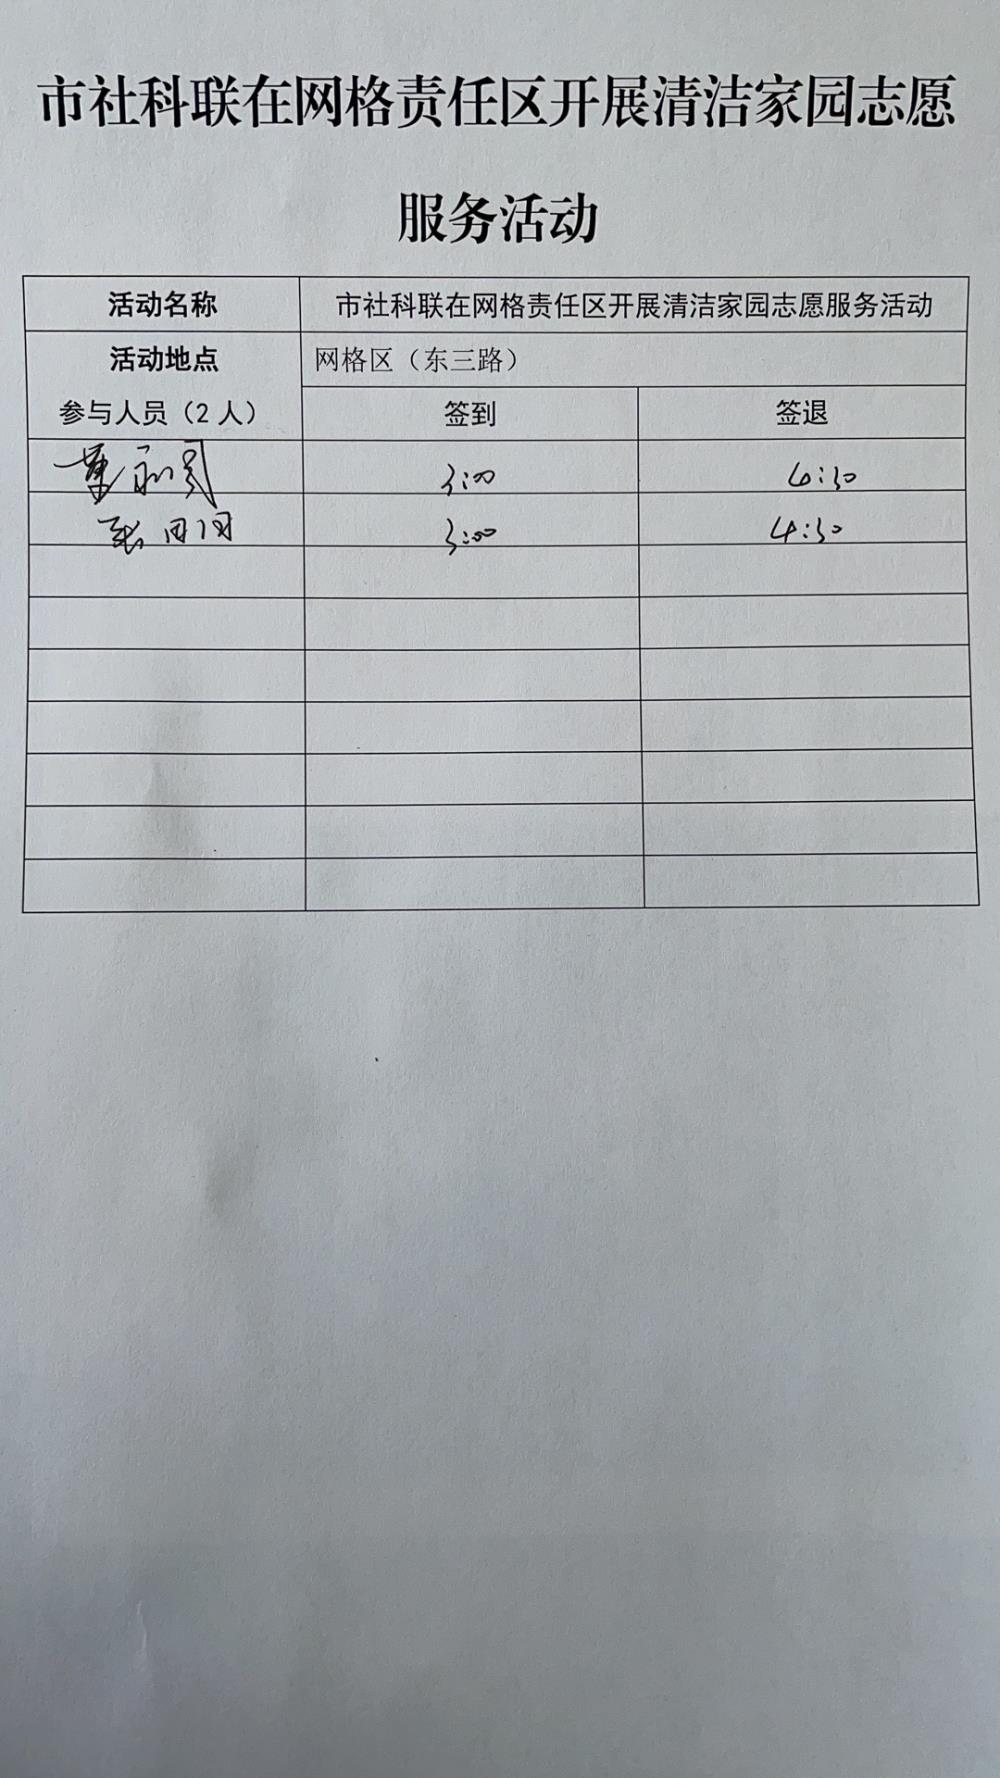 市社科联在网格责任区开展清洁家园志愿
服务活动
活动名称 市社科联在网格责任区开展清洁家园志愿服务活动
活动地点 网格区（东三路）
参与人员（2 人） 签到 签退
3:00 4:30
3:00 4:30